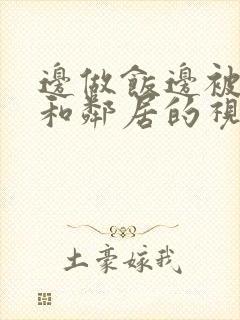 邊做飯邊被
和鄰居的視
土豪嫁我